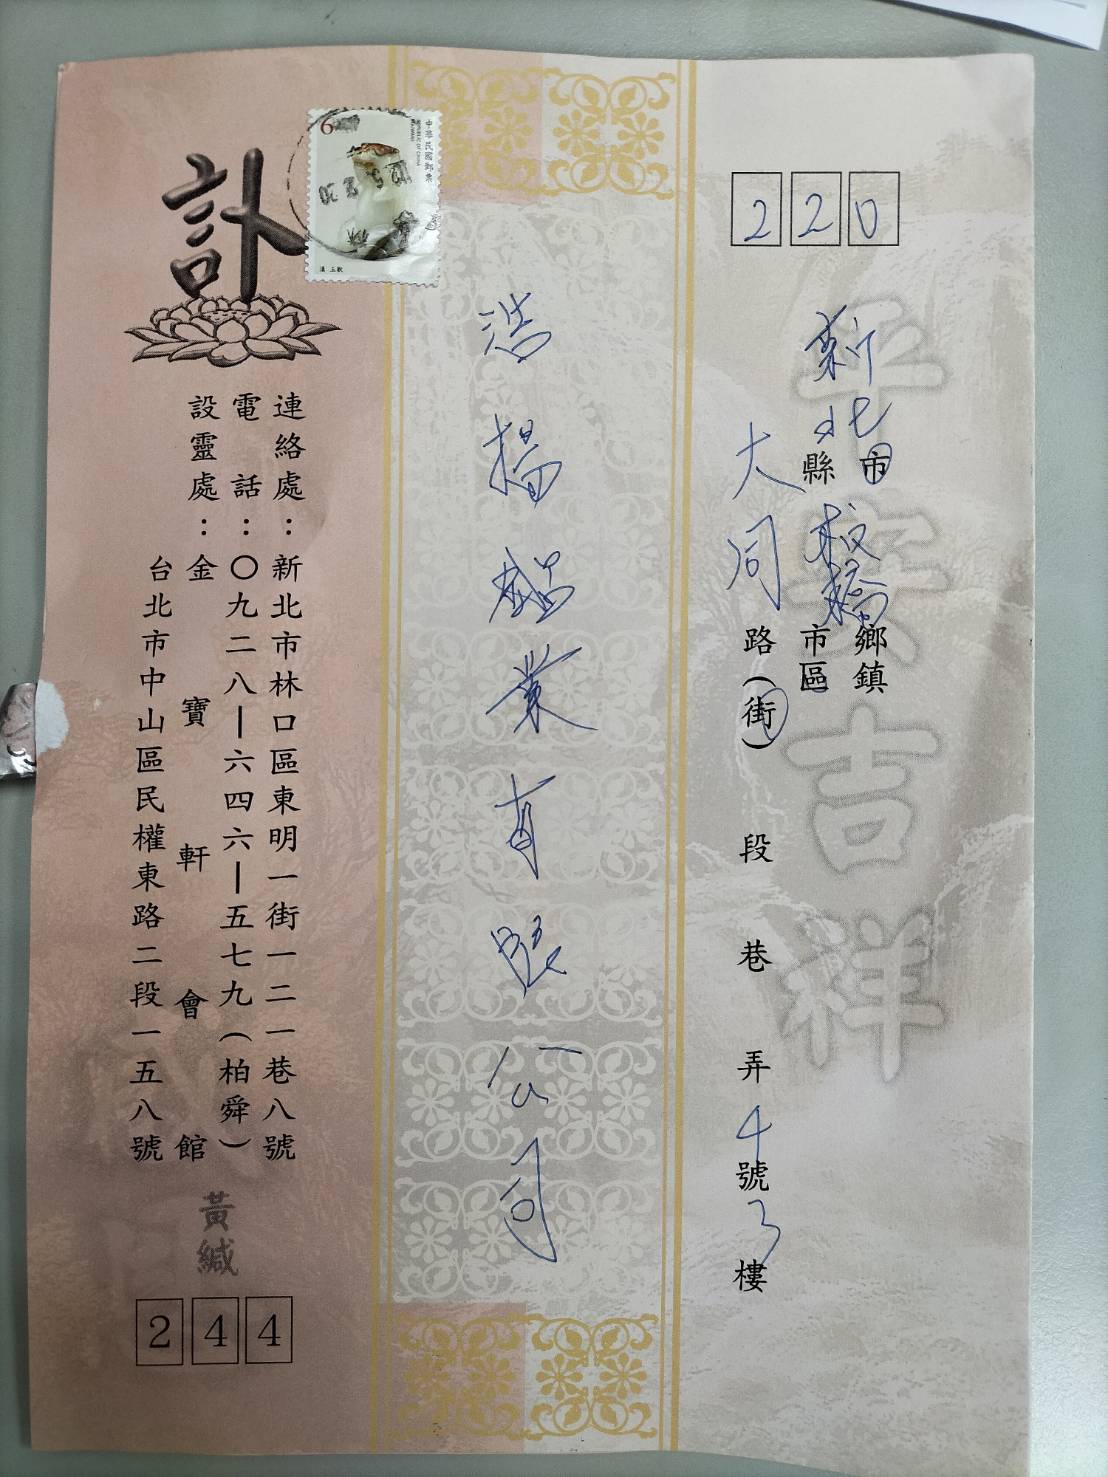 220
新北市
縣
板橋
鄉鎮
市區
大同路(街) 段 巷 弄 4號 3樓
平安吉祥
浩揚鋁業有限公司
6
中華民國郵票
REPUBLIC OF CHINA
訃
連絡處：新北市林口區東明一街一二一巷八號
電話：〇九二八—六四六—五七九(柏舜)
設靈處：金寶軒會館
台北市中山區民權東路二段一五八號
黃緘
244